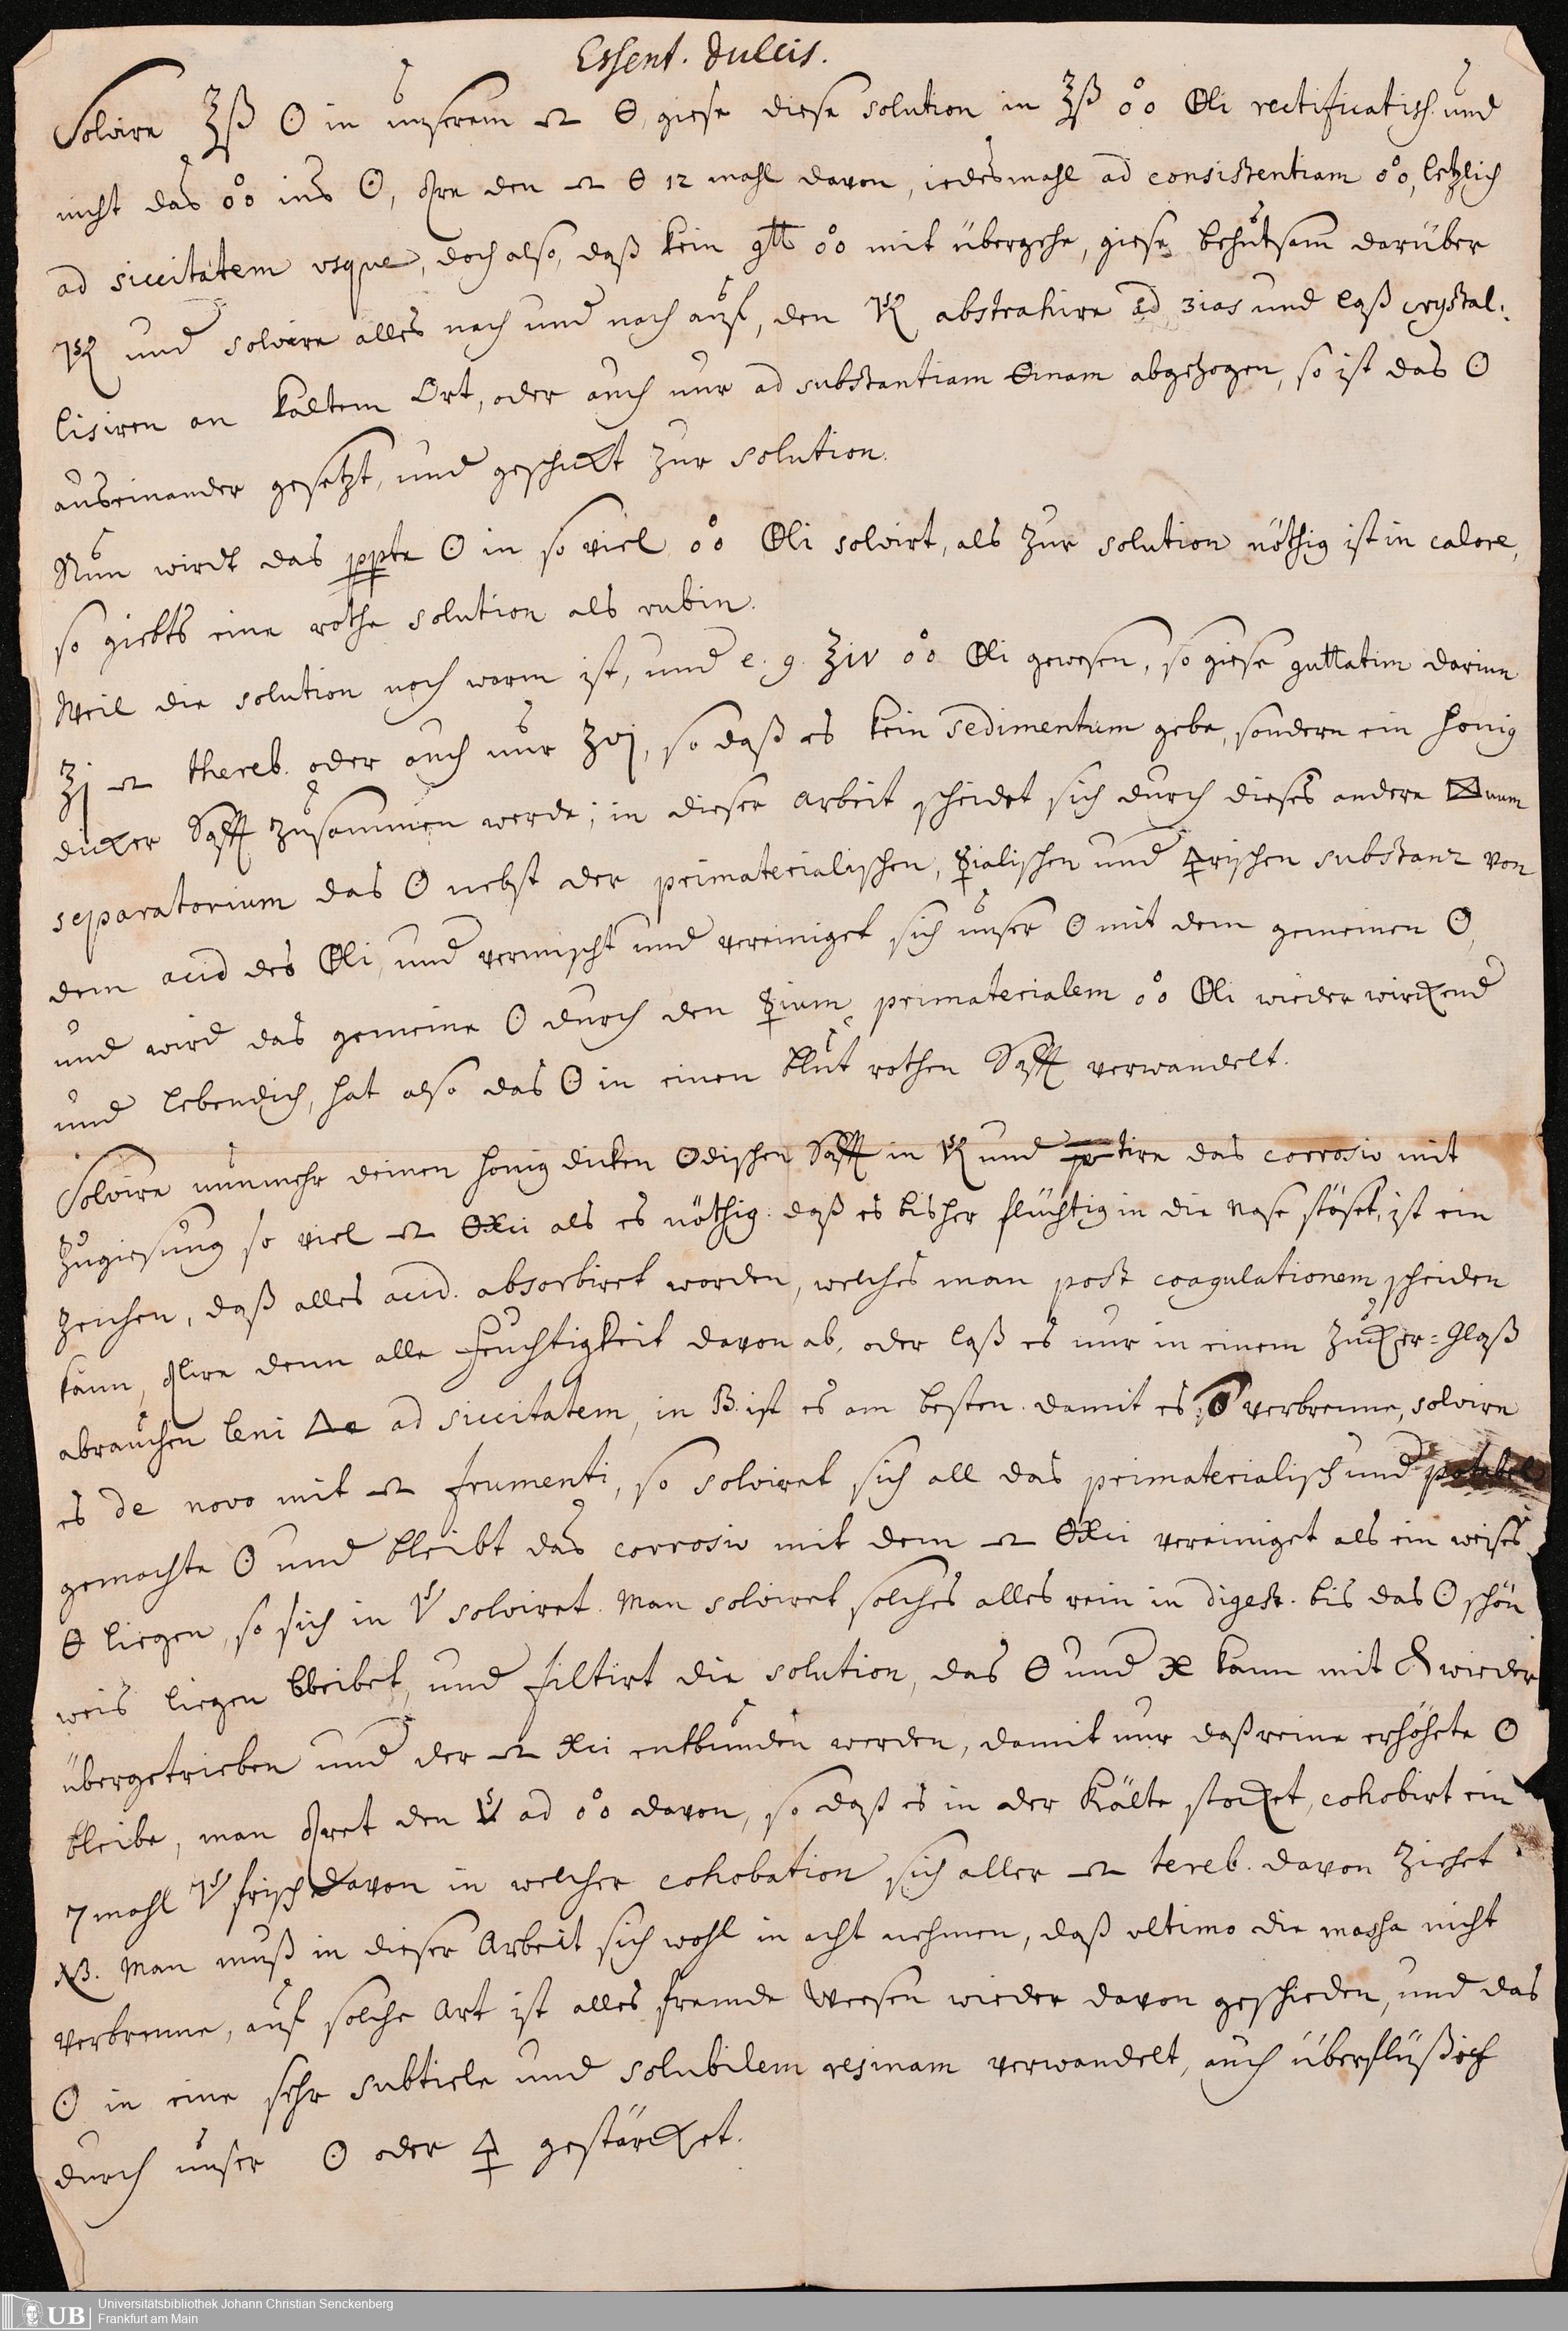 Essent. dulcis.
Solvire ℥ß ☉ in unserem 🜔, giese diese solution in ℥ß o°o Oli rectificatiß. und
nicht das o°o ins ☉, den 12 mahl davon, iedesmahl ad consistentiam o°o, letzlich
ad siccitatem usque, doch also, daß kein gtt o°o mit übergehe, giese behutsam darüber
und solvire alles nach und nach auf, den abstrahire ad 3ias und laß crystal:
lisiren an kaltem Ort, oder auch nur ad substantiam abgezogen, so ist das ☉
auseinander gesetzt, und geschickt zur solution.
Nun wirdt das ppte ☉ in so viel o°o Oli solvirt, als zur solution nöthig ist in calore,
so giebts eine rothe solution als rubin.
Weil die solution noch warm ist, und e. g. ℥iv o°o Oli gewesen, so giese guttatim darinn
℥j thereb. oder auch nur ʒvj, so daß es kein sedimentum gebe, sondern ein honig
dicker Safft zusammen werde; in dieser Arbeit scheidet sich durch dieses andere
separatorium das ☉ nebst der primaterialischen, ☿ialischen und 🜍rischen substanz von
dem acid des Oli, und vermischt und vereiniget sich unser ☉ mit dem gemeinen ☉,
und wird das gemeine ☉ durch den ☿ium primaterialem o°o Oli wieder wirckend
und lebendich, hat also das ☉ in einen blut rothen Safft verwandelt.
Solvire nunmehr deinen honig dicken ☉dischen Safft in und das corrosiv mit
Zugiesung so viel als es nöthig. daß es bisher flüchtig in die Nase stöset, ist ein
Zeichen, daß alles acid. absorbiret worden, welches man post coagulationem scheiden
kann, denn alle feuchtigkeit davon ab, oder laß es nur in einem Zucker=Glaß
abrauchen leni △e ad siccitatem, in B. ist es am besten. damit es verbrenne, solvire
es de novo mit frumenti, so solviret sich all das primaterialisch und potabel
gemachte ☉ und bleibt das corrosiv mit dem vereiniget als ein weises
🜔 liegen, so sich in solviret. Man solviret solches alles rein in digest. bis das ☉ schön
weis liegen bleibet, und filtirt die solution, das 🜔 und kann mit wieder
übergetrieben und der entbunden werden, damit nur daß reine erhöhete ☉
bleibe, man den ad o°o davon, so daß es in der Kälte stocket, cohobirt ein
7 mahl frisch davon in welcher cohobation sich aller tereb. davon ziehet.
NB. Man muß in dieser Arbeit sich wohl in acht nehmen, daß ultimo die massa nicht
verbrenne, auf solche Art ist alles fremde Weesen wieder davon geschieden, und das
☉ in eine sehr subtiele und solubilem resinam verwandelt, auch überflüßich
durch unser ☉ oder 🜍 gestärcket.
UB Universitätsbibliothek Johann Christian Senckenberg
Frankfurt am Main